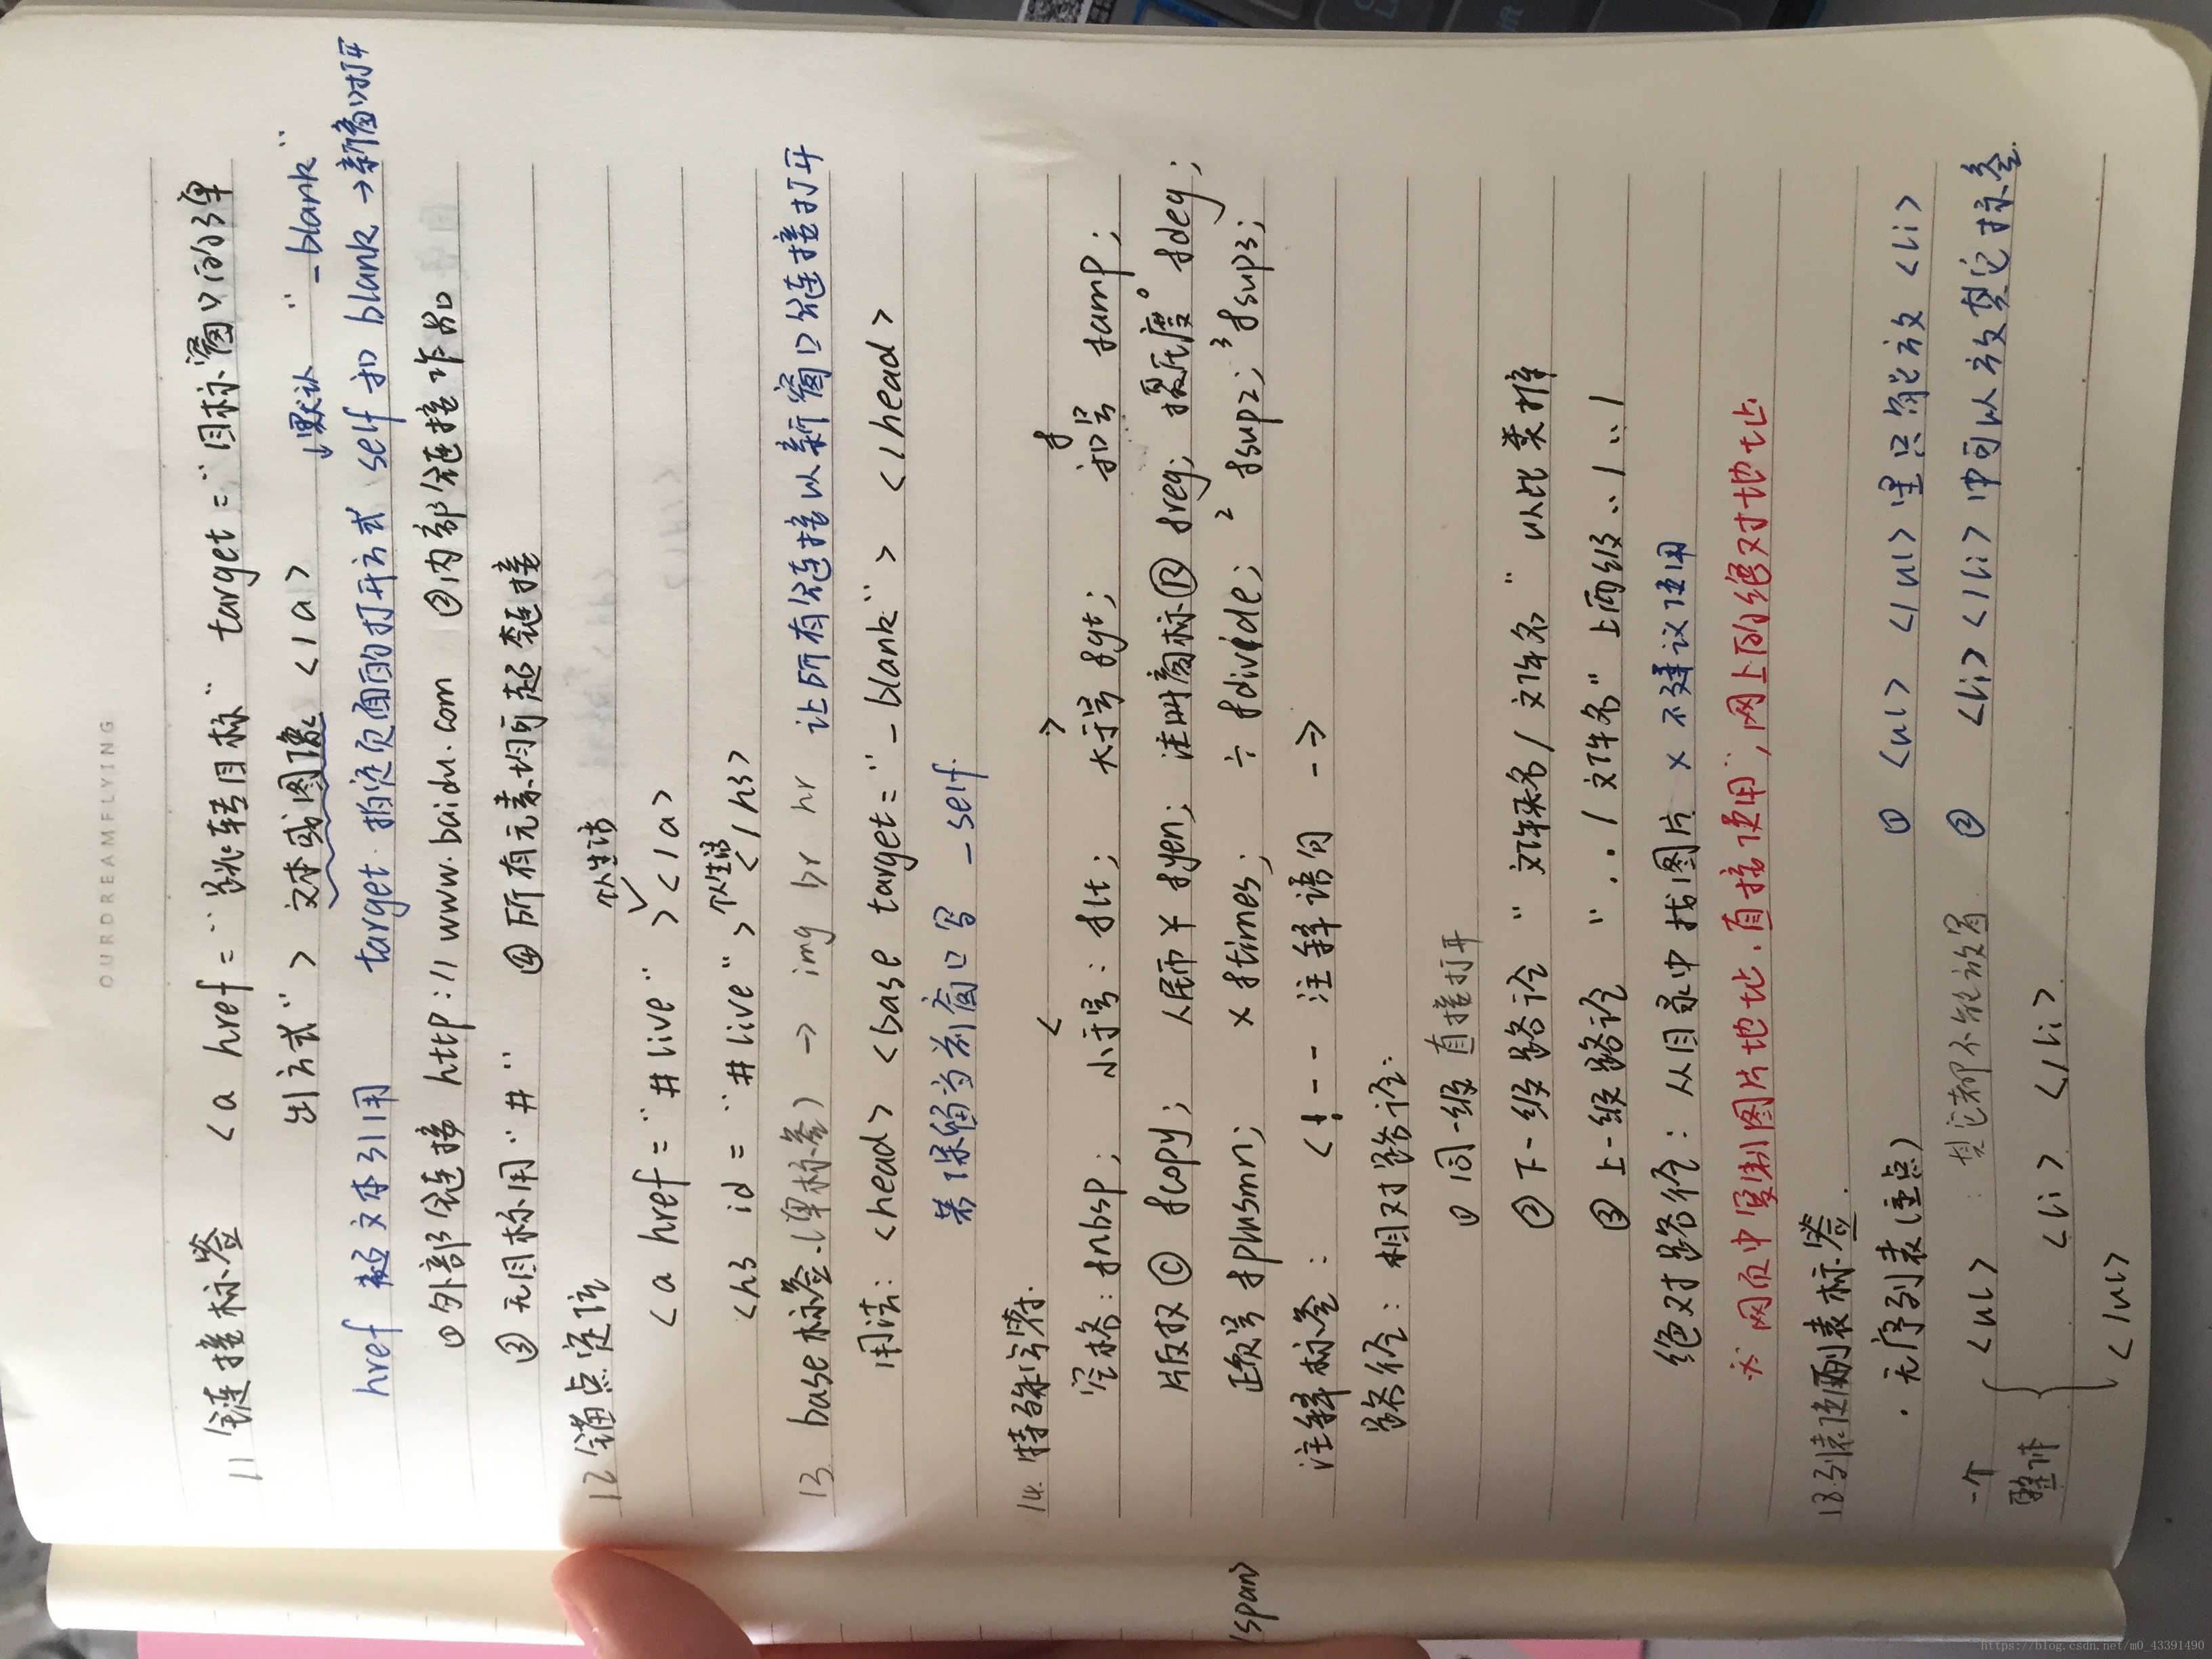 OURDREAMFLYING
11 链接标签 <a href="跳转目标" target="目标窗口的弹
出方式"> 文本或图像 </a> ↓默认 "_blank"
href 超文本引用 target 指定页面的打开方式 self 和 blank →新窗口打开
①外部链接 http://www.baidu.com ②内部链接 作品
③无目标用"#" ④所有元素均可超链接
12 锚点定位 个人生活
<a href="#live"> </a>
<h3 id="#live">个人生活</h3>
13. base标签.(单标签) → img br hr 让所有链接以新窗口链接打开
用法: <head> <base target="_blank"> </head>
若保留当前窗口写 _self.
14. 特殊字符. < > &
空格: &nbsp; 小于号: &lt; 大于号 &gt; 和号 &amp;
版权 © &copy; 人民币 ¥ &yen; 注册商标 ® &reg; 摄氏度° &deg;
正负号 &plusmn; × &times; ÷ &divide; ² &sup2; ³ &sup3;
注释标签: <!-- 注释语句 -->
路径: 相对路径:
① 同一级 直接打开
② 下一级路径 "文件夹名/文件名" 以此类推
③ 上一级路径 "../文件名" 上两级../../
绝对路径: 从目录中找图片 × 不建议使用
※ 网页中复制图片地址.直接使用,网上的绝对地址
18.列表标签.
· 无序列表(重点) ① <ul> </ul>里只能放<li>
一个 <ul> : 其它都不能放置 ② <li></li>中可以放其它标签.
整体 <li> </li>
</ul>
/span>
https://blog.csdn.net/m0_43391490